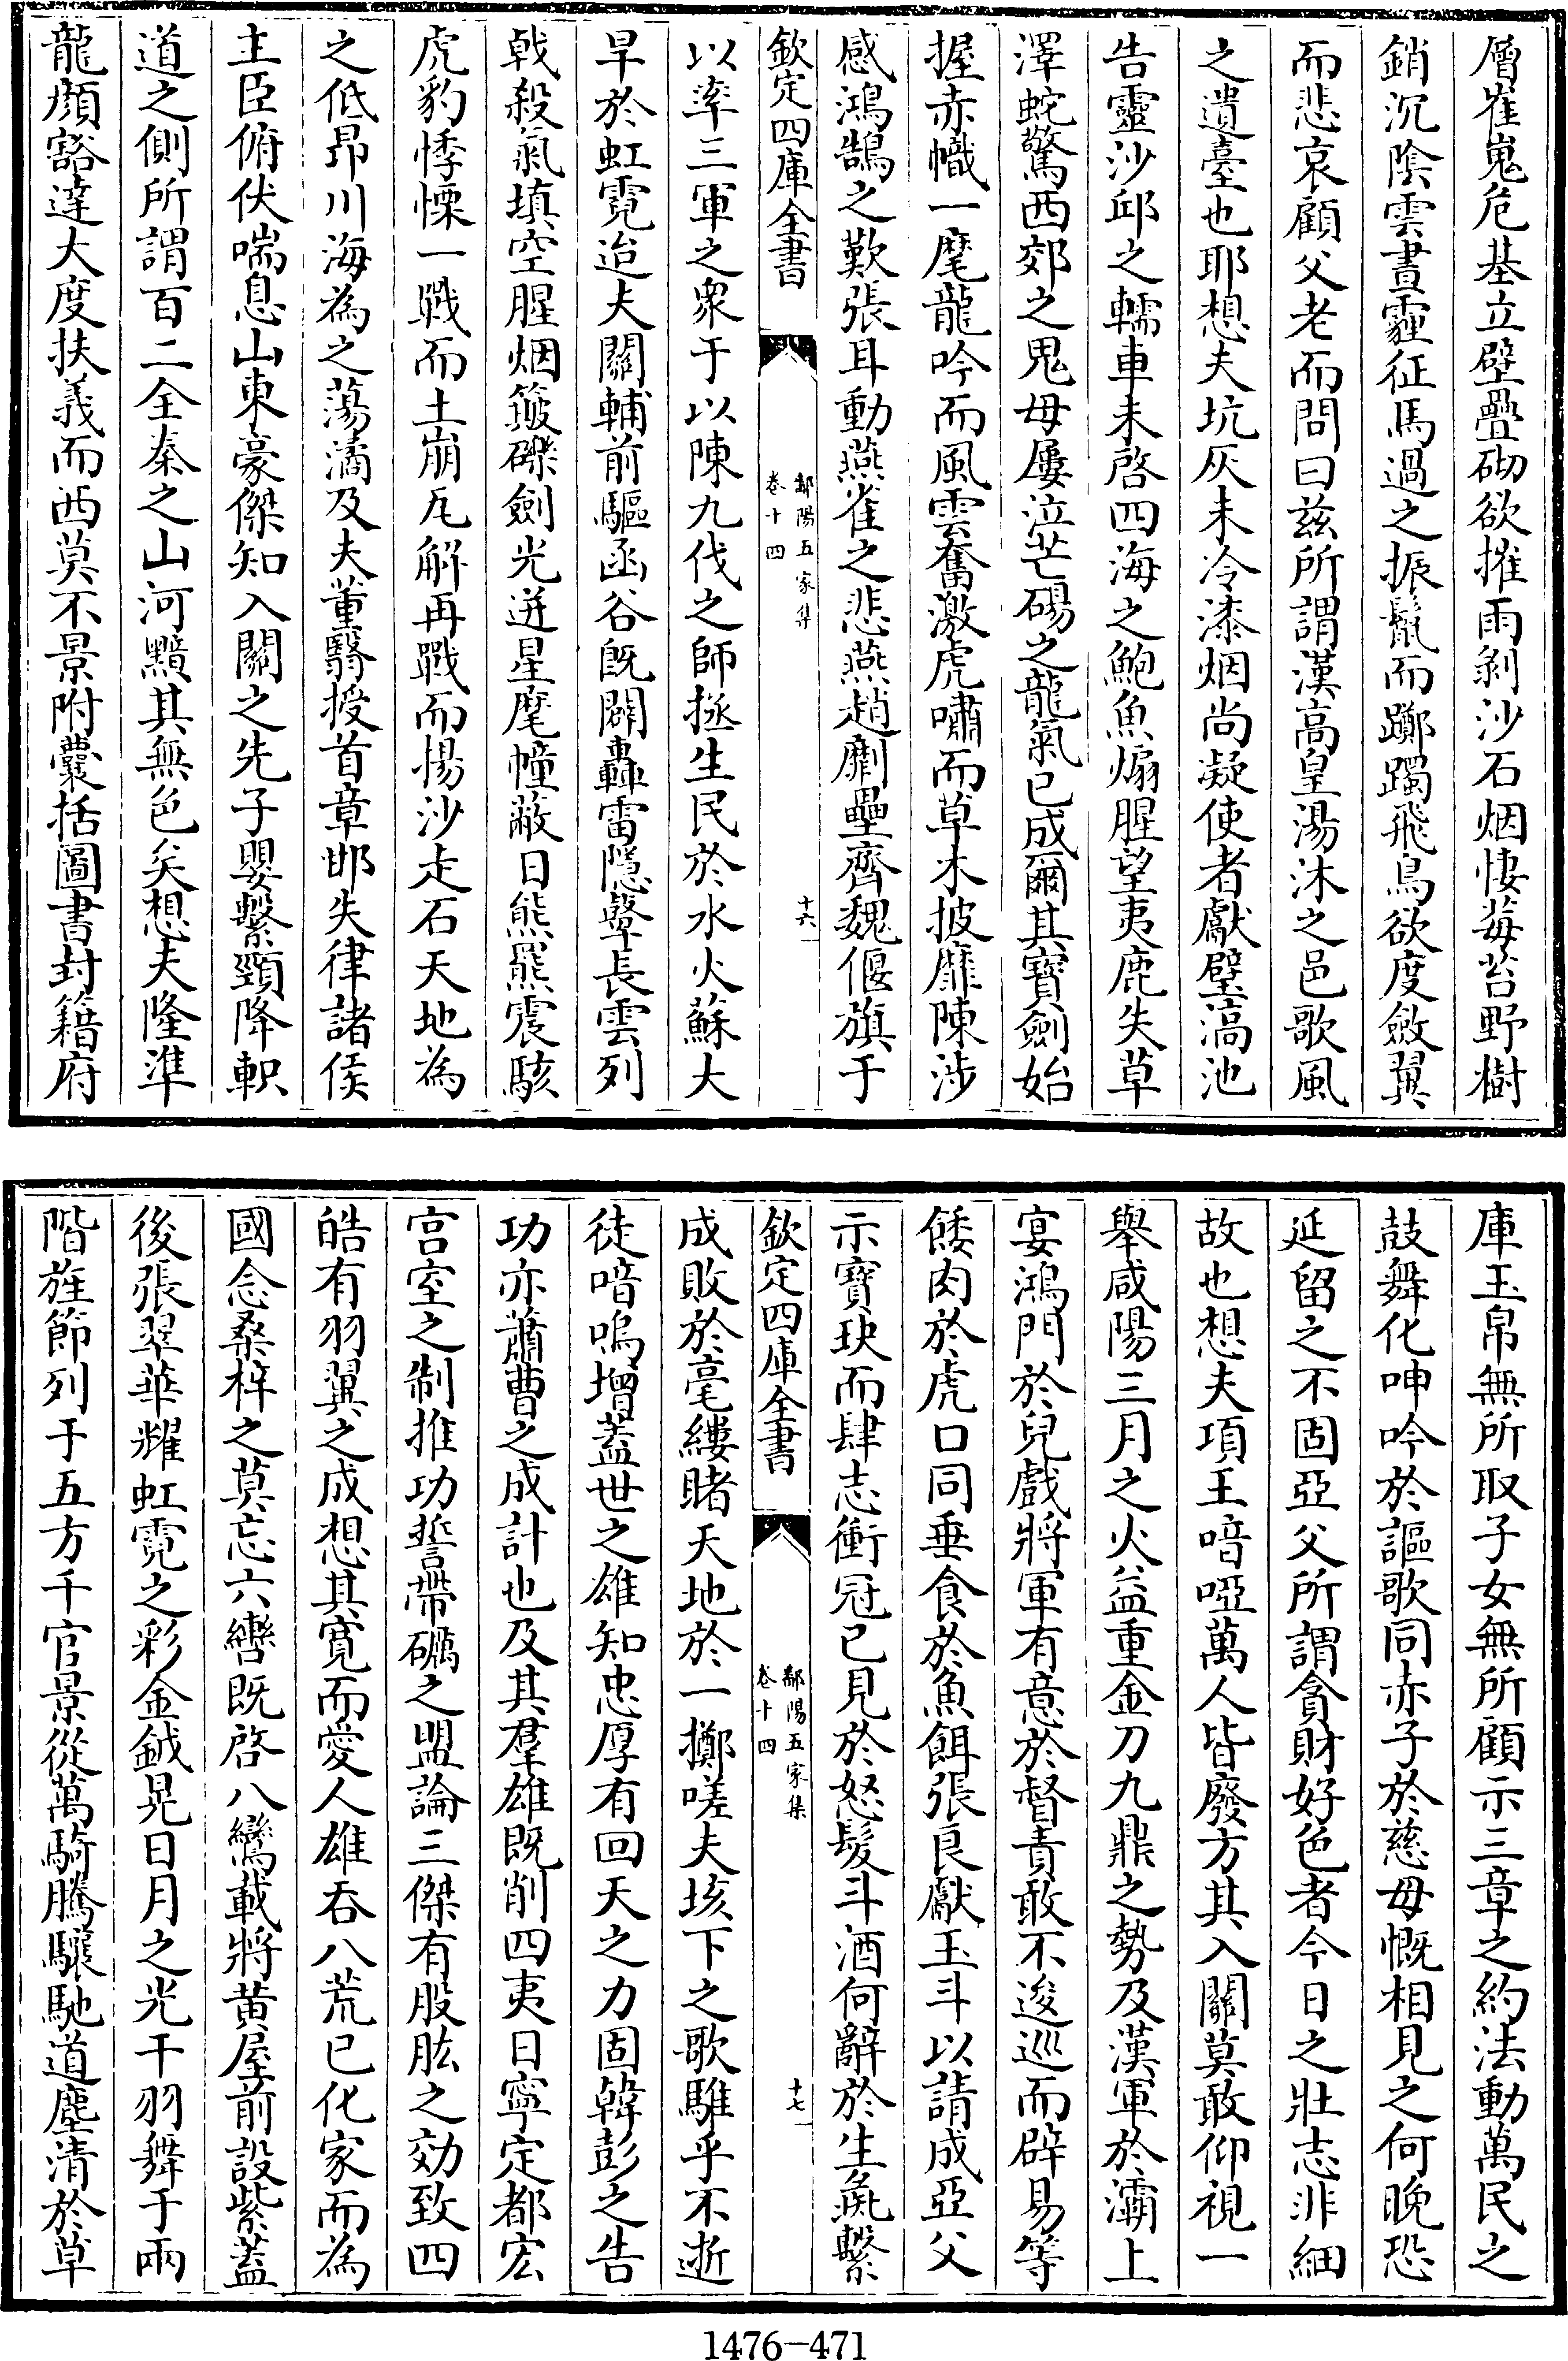 層崔嵬危基立壁疊砌欲摧雨剝沙石烟悽莓苔野樹
銷沉陰雲晝霾征馬過之振鬛而躑躅飛鳥欲度斂翼
而悲哀顧父老而問曰兹所謂漢高皇湯沐之邑歌風
之遺臺也耶想夫坑灰未冷漆烟尚凝使者獻璧滈池
告靈沙邱之轜車未啓四海之鮑魚煽腥望夷鹿失草
澤蛇驚西郊之鬼母屢泣芒碭之龍氣已成爾其寶劍始
握赤幟一麾龍吟而風雲奮激虎嘯而草木披靡陳涉
感鴻鵠之歎張耳動燕雀之悲燕趙劘壘齊魏偃旗于
欽定四庫全書
鄱陽五家集
卷十四
十六
以率三軍之衆于以陳九伐之師拯生民於水火蘇大
旱於虹霓迨夫關輔前驅函谷既闢轟雷隱鼙長雲列
戟殺氣填空腥烟簸礫劍光迸星麾幢蔽日熊羆震駭
虎豹悸慄一戰而土崩瓦解再戰而揚沙走石天地為
之低昂川海為之蕩潏及夫董翳授首章邯失律諸侯
主臣俯伏喘息山東豪傑知入關之先子嬰繫頸降軹
道之側所謂百二全秦之山河黯其無色矣想夫隆準
龍顔豁達大度扶義而西莫不景附囊括圖書封籍府
庫玉帛無所取子女無所顧示三章之約法動萬民之
鼓舞化呻吟於謳歌同赤子於慈母慨相見之何晚恐
延留之不固亞父所謂貪財好色者今日之壯志非細
故也想夫項王喑啞萬人皆廢方其入關莫敢仰視一
舉咸陽三月之火益重金刀九鼎之勢及漢軍於灞上
宴鴻門於兒戲將軍有意於督責敢不逡巡而辟易等
餧肉於虎口同垂食於魚餌張良獻玉斗以請成亞父
示寶玦而肆志衝冠已見於怒髮斗酒何辭於生彘繫
欽定四庫全書
鄱陽五家集
卷十四
十七
成敗於毫縷睹天地於一擲嗟夫垓下之歌騅乎不逝
徒喑嗚增蓋世之雄知忠厚有回天之力固韓彭之告
功亦蕭曹之成計也及其羣雄既削四夷日寧定都宏
宫室之制推功誓帶礪之盟論三傑有股肱之効致四
皓有羽翼之成想其寛而愛人雄吞八荒已化家而為
國念桑梓之莫忘六轡既啓八鸞載將黄屋前設紫蓋
後張翠華耀虹霓之彩金鉞晃日月之光干羽舞于兩
階旌節列于五方千官景從萬騎騰驤馳道塵清於草
1476-471